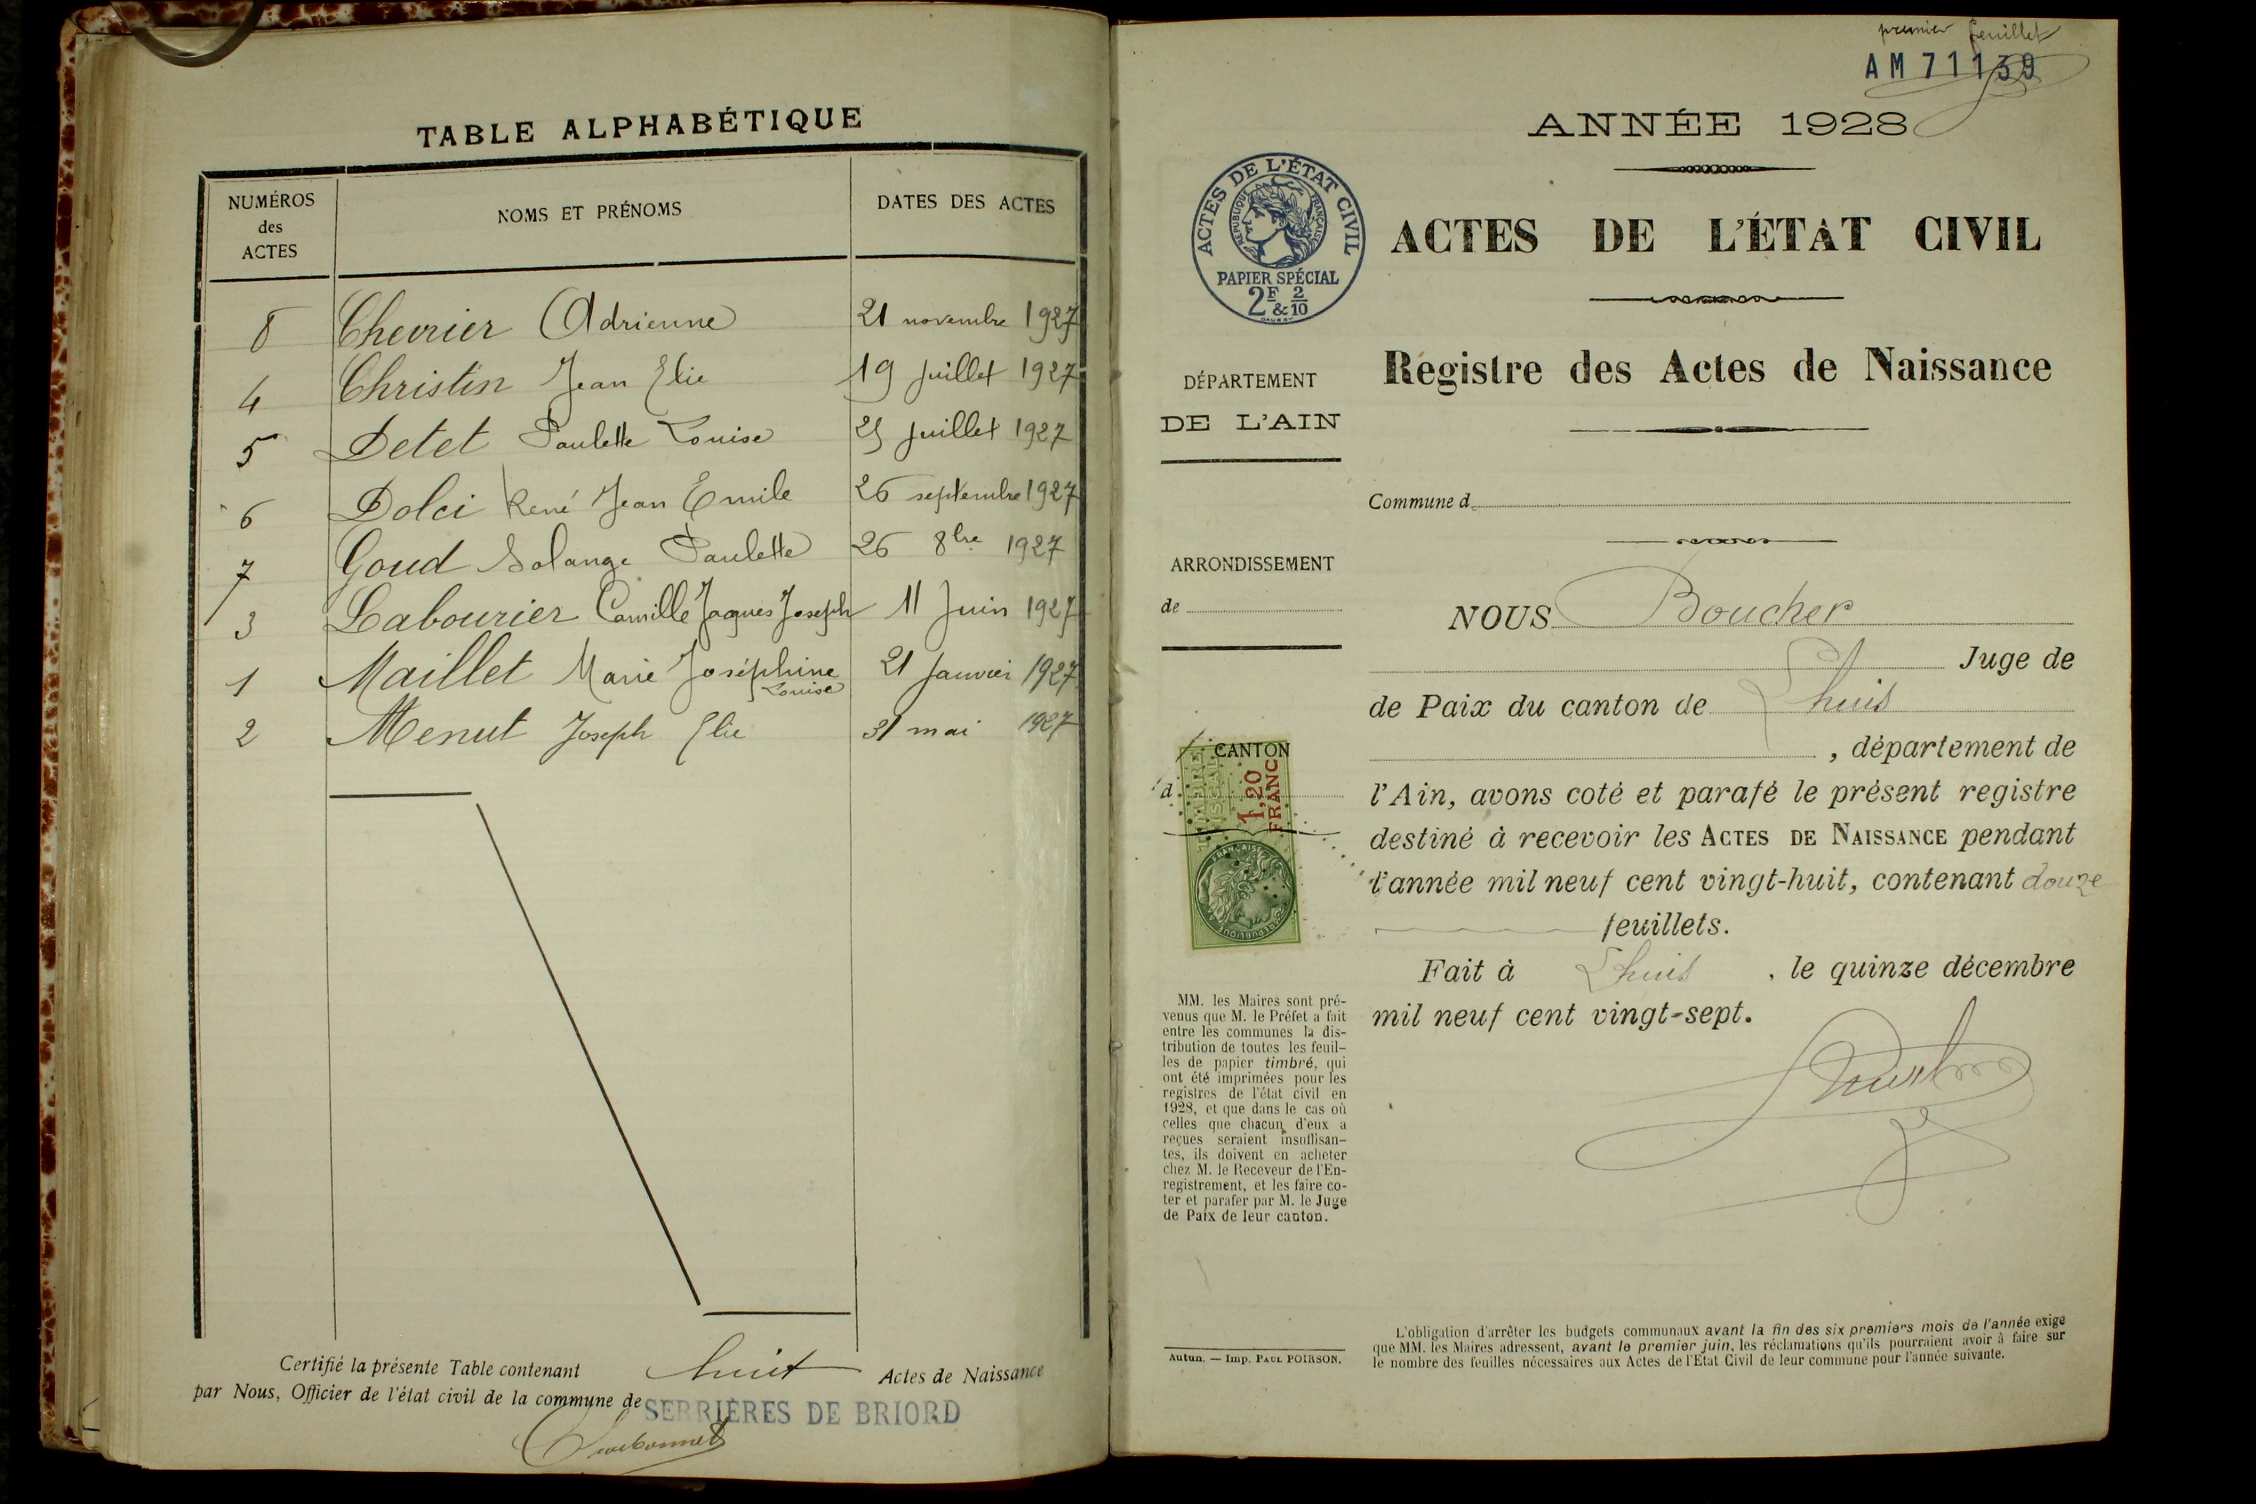 TABLE ALPHABÉTIQUE
NUMÉROS des ACTES NOMS ET PRÉNOMS DATES DES ACTES
8 Chevrier Adrienne 21 novembre 1927
4 Christin Jean Elie 19 Juillet 1927
5 Detet Paulette Louise 25 Juillet 1927
6 Dolci René Jean Emile 26 septembre 1927
7 Goud Solange Paulette 26 8bre 1927
3 Labourier Camille Jaques Joseph 11 Juin 1927
1 Maillet Marie Joséphine 21 Janvier 1927
Louise
2 Menut Joseph Elie 31 mai 1927
Certifié la présente Table contenant huit Actes de Naissance
par Nous, Officier de l'état civil de la commune de SERRIÈRES DE BRIORD
premier feuillet
AM 71139
ANNÉE 1928
ACTES DE L'ÉTAT CIVIL
RÉPUBLIQUE FRANÇAISE
PAPIER SPÉCIAL
2F & 2/10
ACTES DE L'ÉTAT CIVIL
Registre des Actes de Naissance
DÉPARTEMENT
DE L'AIN
Commune d
ARRONDISSEMENT
de
CANTON
d
TIMBRE FISCAL
1,20
FRANC
RÉPUBLIQUE FRANÇAISE
NOUS Boucher
Juge de
de Paix du canton de Lhuis
, département de
l'Ain, avons coté et parafé le présent registre
destiné à recevoir les ACTES DE NAISSANCE pendant
l'année mil neuf cent vingt-huit, contenant douze
feuillets.
Fait à Lhuis, le quinze décembre
mil neuf cent vingt-sept.
MM. les Maires sont pré-
venus que M. le Préfet a fait
entre les communes la dis-
tribution de toutes les feuil-
les de papier timbré, qui
ont été imprimées pour les
registres de l'état civil en
1928, et que dans le cas où
celles que chacun d'eux a
reçues seraient insuffisan-
tes, ils doivent en acheter
chez M. le Receveur de l'En-
registrement, et les faire co-
ter et parafer par M. le Juge
de Paix de leur canton.
Autun. — Imp. PAUL POIRSON.
L'obligation d'arrêter les budgets communaux avant la fin des six premiers mois de l'année exige
que MM. les Maires adressent, avant le premier juin, les réclamations qu'ils pourraient avoir à faire sur
le nombre des feuilles nécessaires aux Actes de l'Etat Civil de leur commune pour l'année suivante.